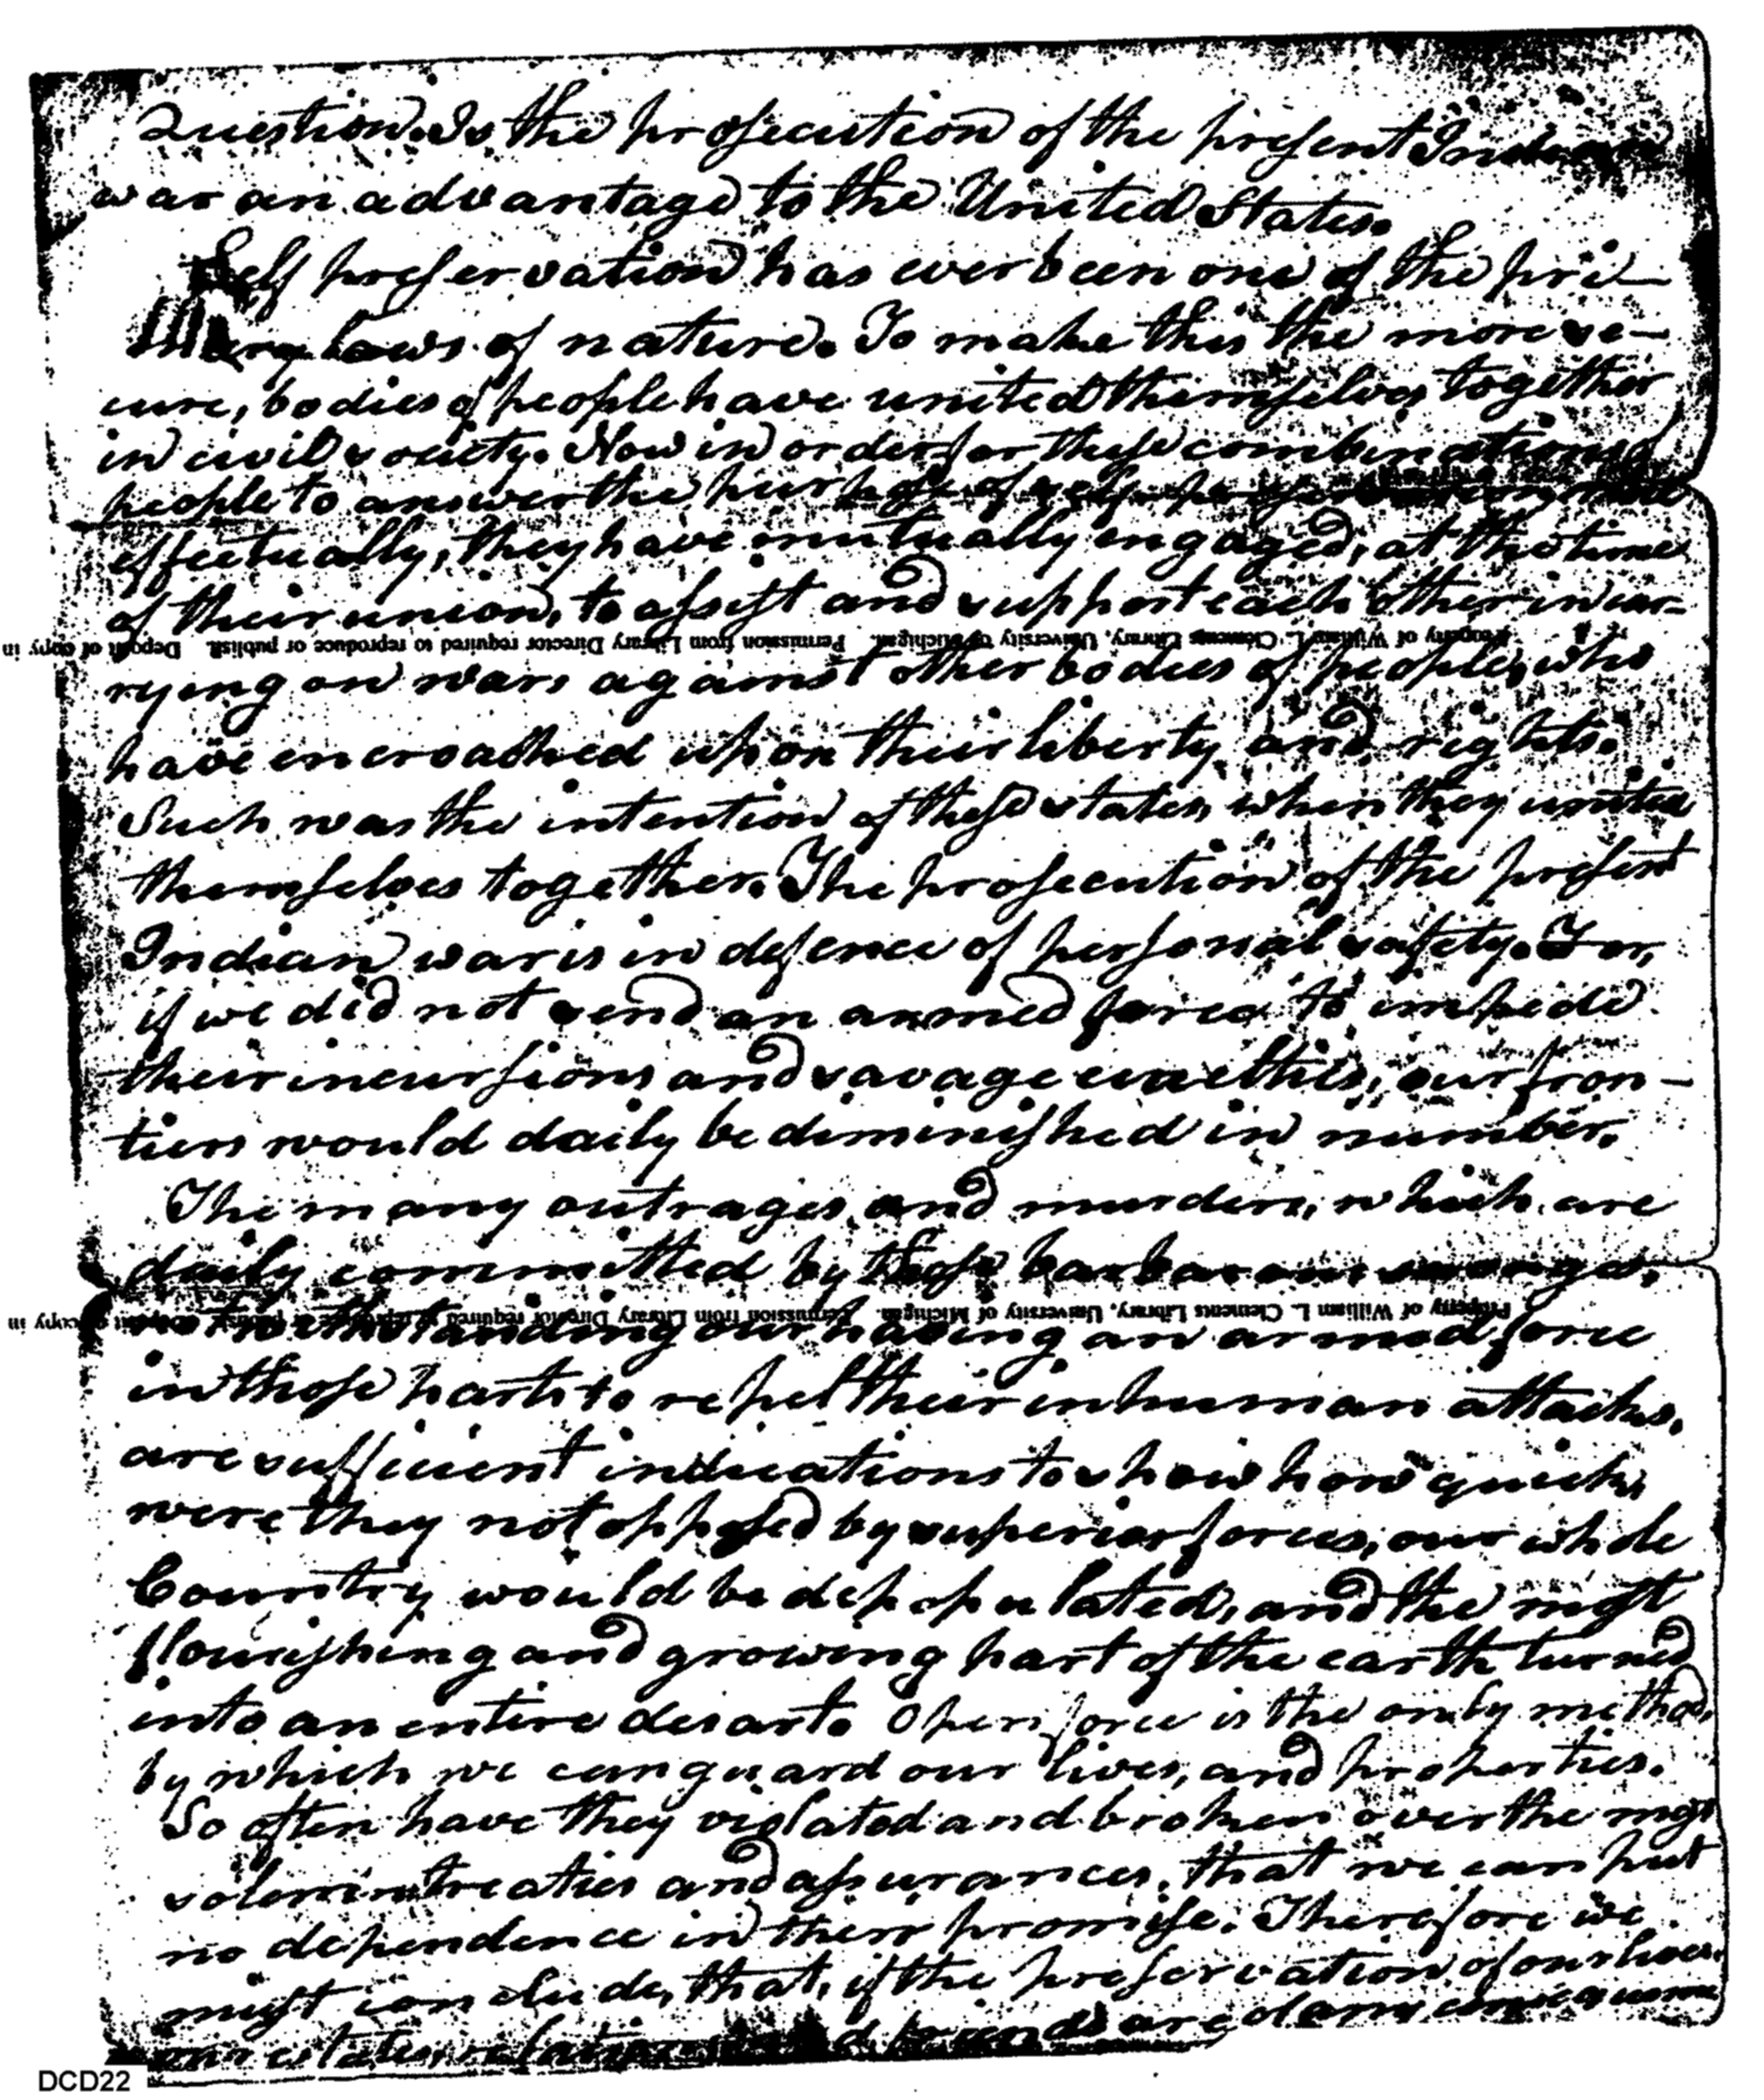 Question. Is the prosecution of the present Indian
war an advantage to the United States.
Self preservation has ever been one of the pri-
mary laws of nature. To make this the more se-
cure, bodies of people have united themselves together
in civil society. Now in order for these combinations of
people to answer the purpose of self preservation more
effectually, they have mutually engaged, at the time
of their union, to assist and support each other in car-
Property of William L. Clements Library, University of Michigan. Permission from Library Director required to reproduce or publish. Deposit of copy in
rying on wars against other bodies of people, who
have encroached upon their liberty and rights.
Such was the intention of these states, when they united
themselves together. The prosecution of the present
Indian war is in defence of personal safety. For,
if we did not send an armed force to impede
their incursions and savage cruelties, our fron-
tiers would daily be diminished in number.
The many outrages and murders, which are
daily committed by those barbarous savages,
Property of William L. Clements Library, University of Michigan. Permission from Library Director required to reproduce or publish. Deposit of copy in
notwithstanding our having an armed force
in those parts to repel their inhuman attacks,
are sufficient indications to show how quick,
were they not opposed by superior forces, our whole
Country would be depopulated, and the most
flourishing and growing part of the earth turned
into an entire desart. Open force is the only method,
by which we can guard our lives, and properties.
So often have they violated and broken over the most
solemn treaties and assurances, that we can put
no dependence in their promise. Therefore we
must conclude, that, if the preservation of our lives,
our estates, relations and friends are of any consequence
DCD22